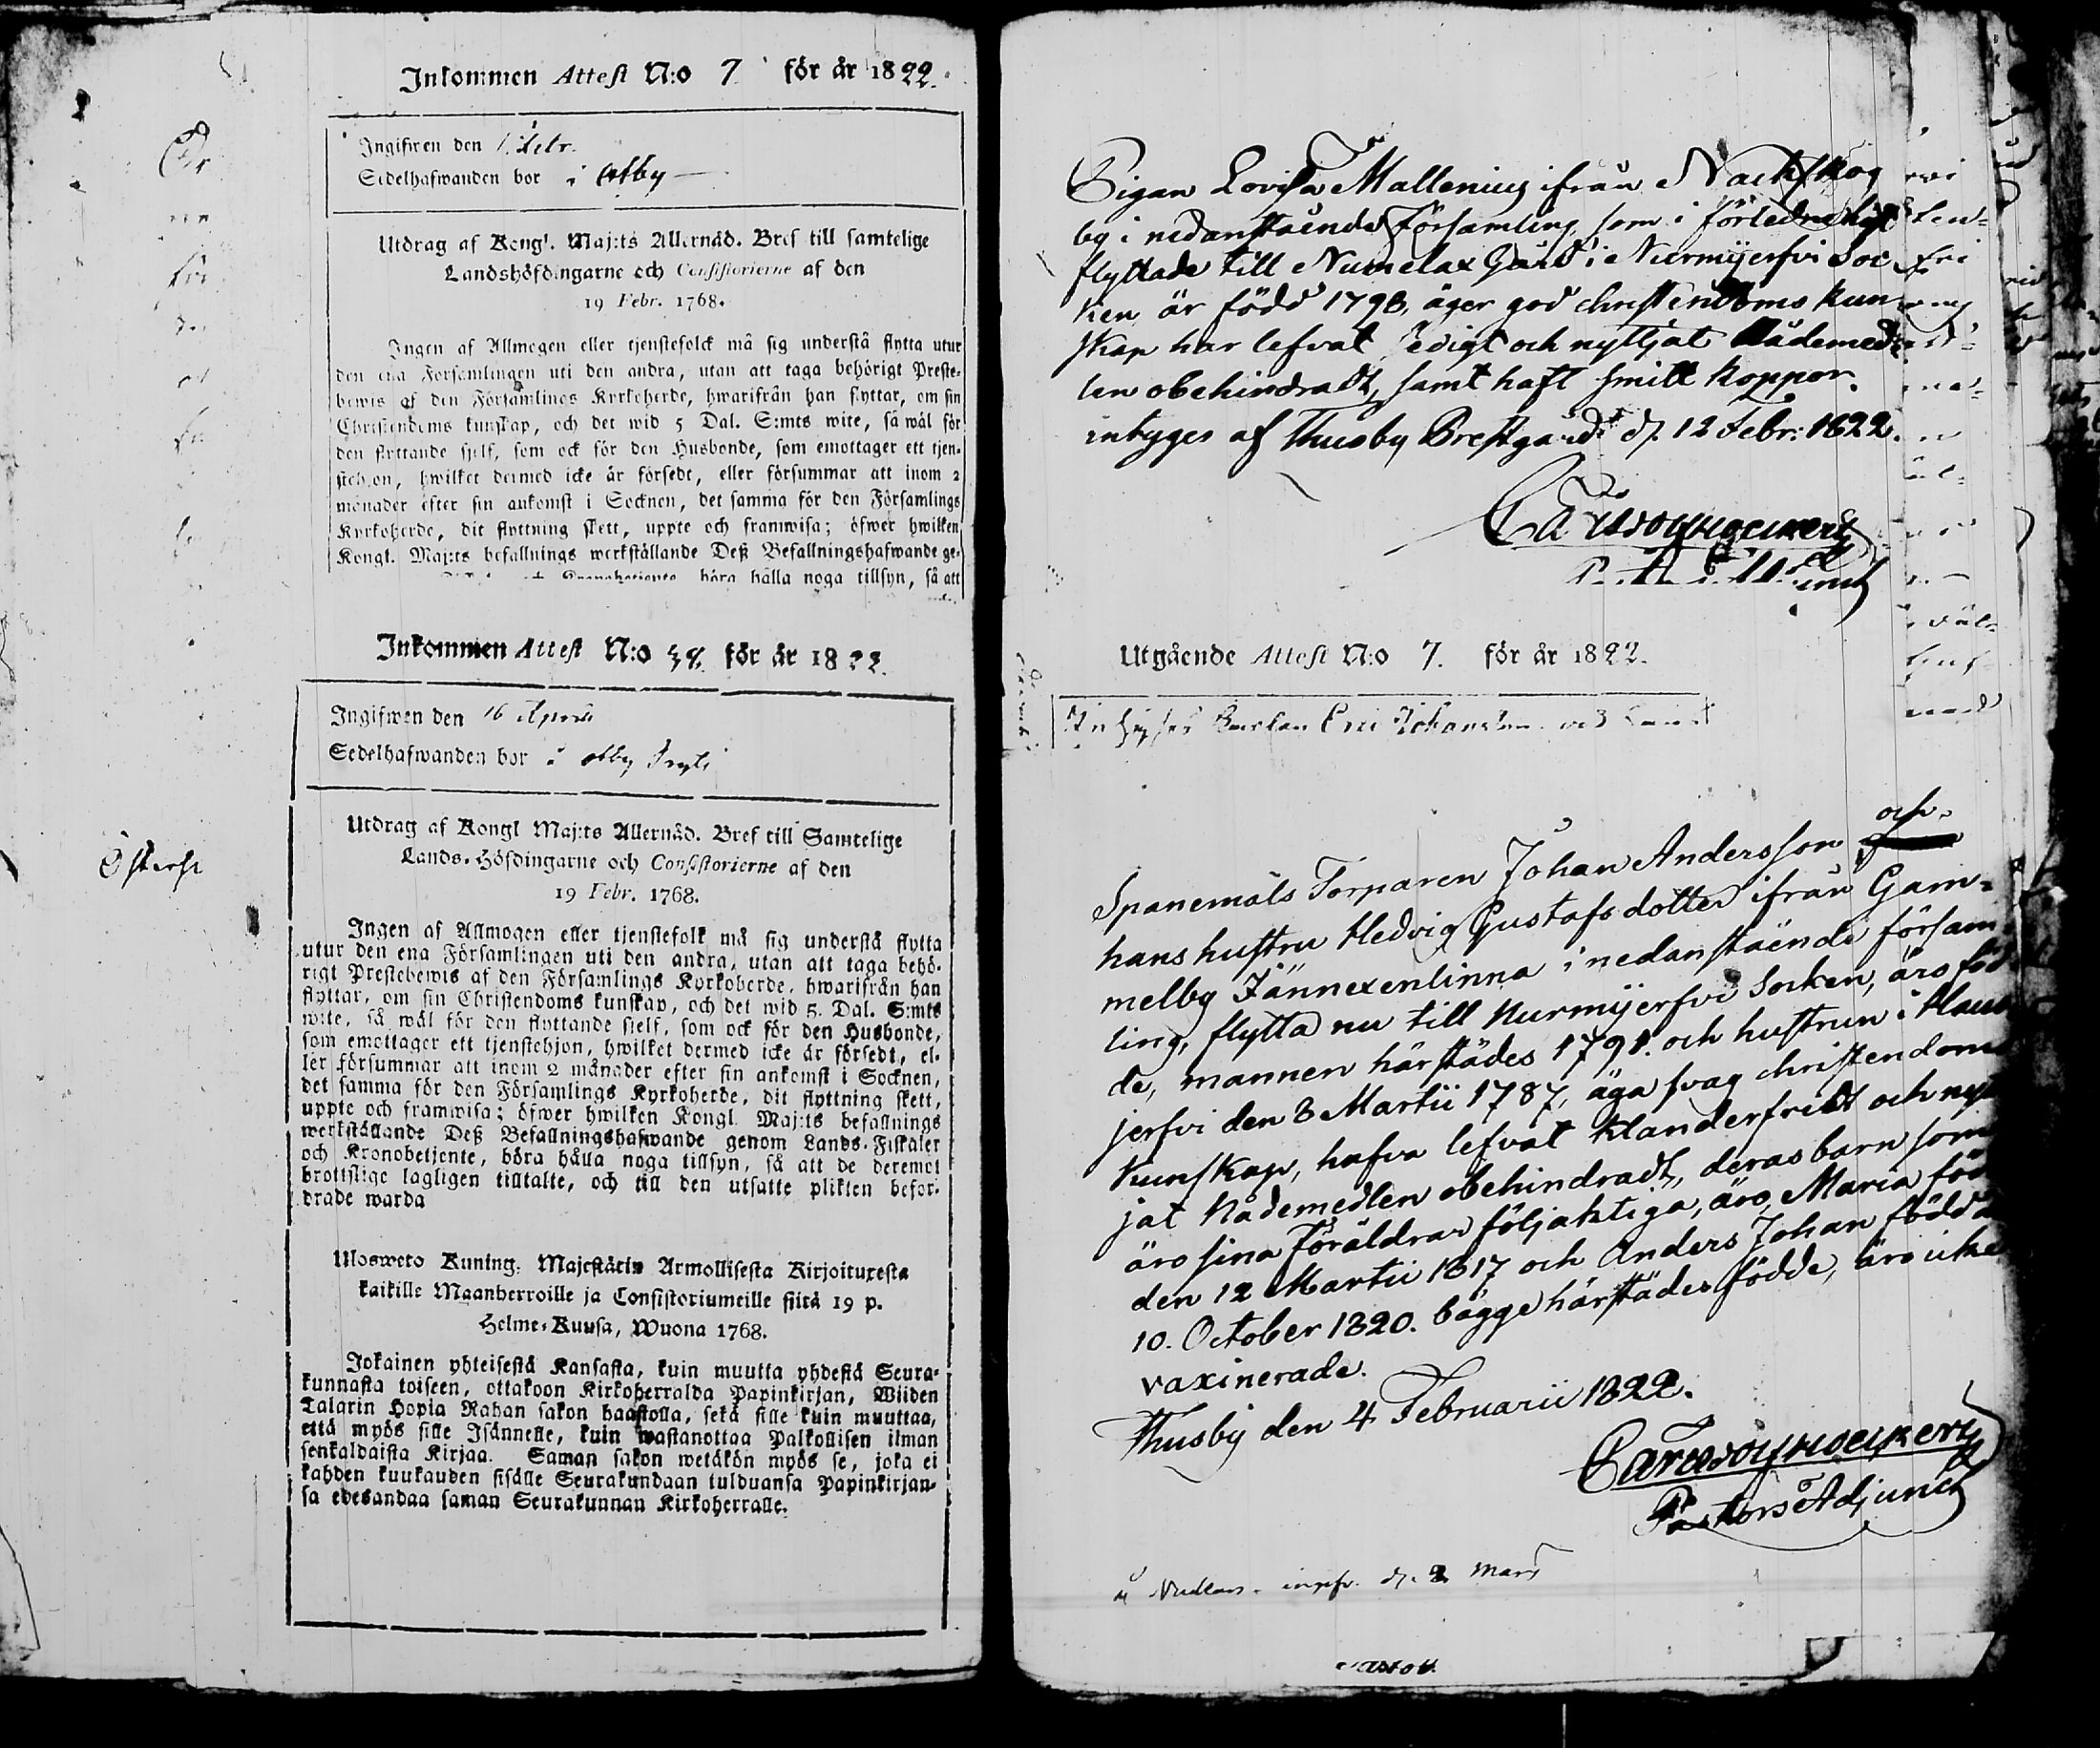 Inkommen Attest N:o 7 för år 1822.
Ingifwen den 1. Febr.
Sedelhafwanden bor i
Utdrag af Kongl. Maj:ts Allernåd. Bref till samtelige
Landshöfdingarne och Consistorierne af den
19 Febr. 1768.
Ingen af Allmogen eller tjenstefolck må sig understå flytta utur
den ena Församlingen uti den andra, utan att taga behörigt Preste-
bewis af den Församlings Kyrkoherde, hwarifrån han flyttar, om sin
Christendoms kunskap, och det wid 5 Dal. S:mts wite, så wäl för
den flyttande sjelf, som ock för den Husbonde, som emottager ett tjen-
stehjon, hwilket dermed icke är försedt, eller försummar att inom 2
månader efter sin ankomst i Socknen, det samma för den Församlings
Kyrkoherde, dit flyttning skett, uppte och framwisa; öfwer hwilken
Kongl. Maj:ts befallnings werkställande Deß Befallningshafwande ge-
böra hålla noga tillsyn, så att
Inkommen Attest N:o 38. för år 1822.
Ingifwen den 16 April
Sedelhafwanden bor i
Utdrag af Kongl Maj:ts Allernåd. Bref till Samtelige
Lands-Höfdingarne och Consistorierne af den
19 Febr. 1768.
Ingen af Allmogen eller tjenstefolk må sig understå flytta
utur den ena Församlingen uti den andra, utan att taga behö-
rigt Prestebewis af den Församlings Kyrkoherde, hwarifrån han
flyttar, om sin Christendoms kunskap, och det wid 5. Dal. S:mts
wite, så wäl för den flyttande sjelf, som ock för den Husbonde,
som emottager ett tjenstehjon, hwilket dermed icke är försedt, el-
ler försummar att inom 2 månader efter sin ankomst i Socknen,
det samma för den Församlings Kyrkoherde, dit flyttning skett,
uppte och framwisa; öfwer hwilken Kongl. Maj:ts befallnings
werkställande Deß Befallningshafwande genom Lands-Fiskaler
och Kronobetjente, böra hålla noga tillsyn, så att de deremot
brottslige lagligen tilltalte, och till den utsatte plikten befor-
drade warda
Ulosweto Kuning: Majestätin Armollisesta Kirjoituxesta
kaikille Maanherroille ja Consistoriumeille siitä 19 p.
Helme-Kuusa, Wuona 1768.
Jokainen yhteisestä Kansasta, kuin muutta yhdestä Seura-
kunnasta toiseen, ottakoon Kirkoherralda Papinkirjan, Wiiden
Talarin Hopia Rahan sakon haastolla, sekä sille kuin muuttaa,
että myös sille Isännelle, kuin wastanottaa Palkollisen ilman
senkaldaista Kirjaa. Saman sakon wetäkön myös se, joka ei
kahden kuukauden sisälle Seurakundaan tulduansa Papinkirjan-
sa edesandaa saman Seurakunnan Kirkoherralle.
Pigan Lovisa Mallenius ifrån Nackskog
by i nedanstående församling, som i förledne höst
flyttade till Numelax Gård i Nurmijerfvi Soc
ken är född 1798, äger god christendoms kun-
skap har lefvat sedigt och nyttjat Nådemed-
len obehindradt, samt haft smitt koppor.
intyges af Thusby Prestgård d. 12 Febr: 1822.
Utgående Attest N:o 7. för år 1822.
Spanemåls Torparen Johan Andersson och
hans hustru Hedvig Gustafsdotter ifrån Gam-
melby Jännexenlinna i nedanstående försam-
ling, flytta nu till Nurmijerfvi Socken, äro föd
de, mannen härstädes 1791. och hustrun i Haus
jerfvi den 3 Martii 1787, äga svag christendoms
kunskap, hafva lefvat klanderfritt och nytt
jat Nådemedlen obehindradt, deras barn som
äro sina föräldrar följaktiga, äro, Maria född
den 12 Martii 1817 och Anders Johan född d
10. October 1820. bägge härstädes födde, äro icke
vaxinerade.
Thusby den 4 Februarii 1822.
Pastors Adjunct
2 Mars